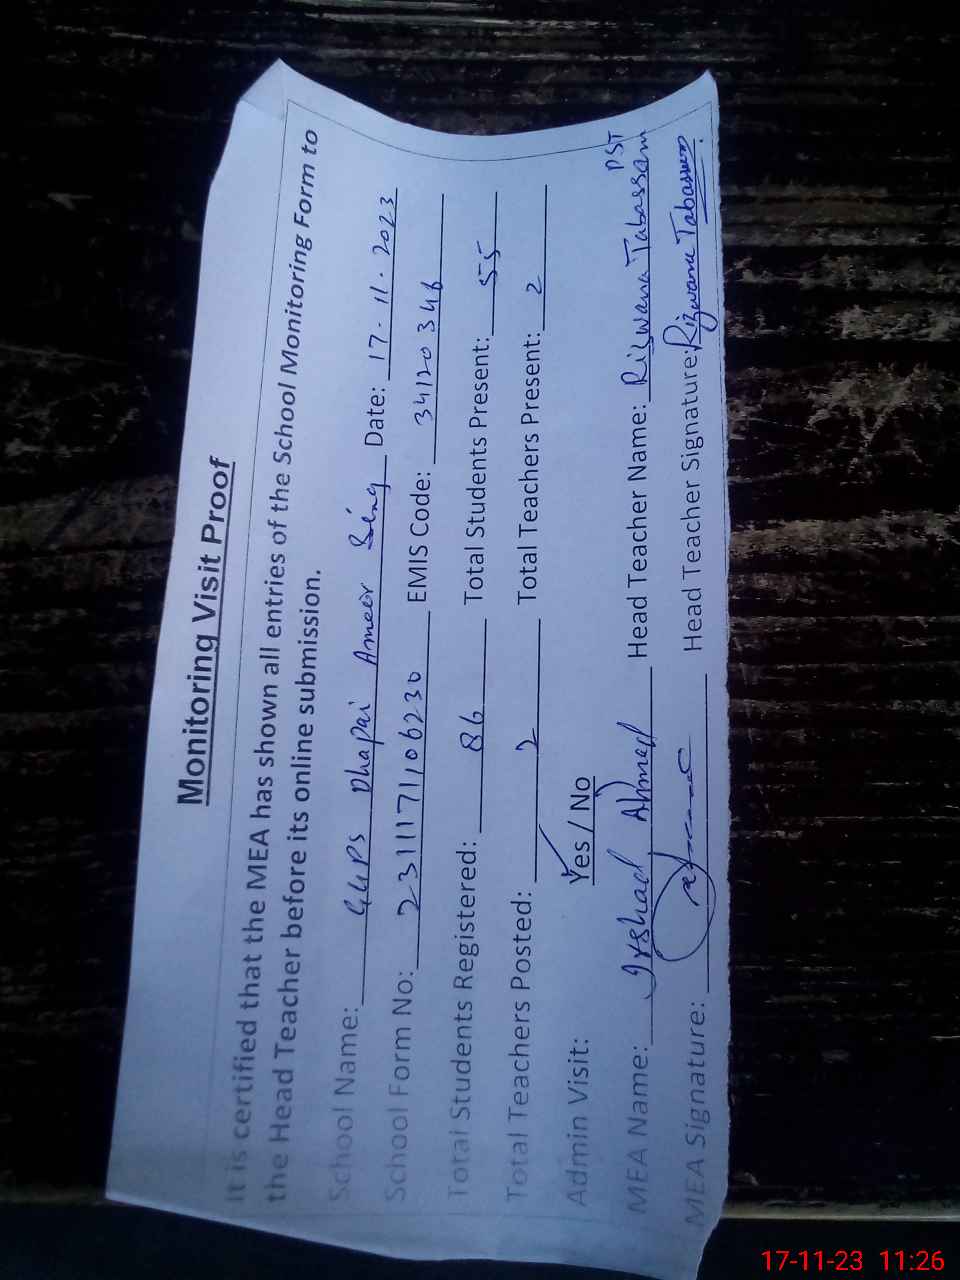 Monitoring Visit Proof
It is certified that the MEA has shown all entries of the School Monitoring Form to
the Head Teacher before its online submission.
School Name: GGPS Dhapai Ameer Sing Date: 17-11-2023
School Form No: 2311171106230 EMIS Code: 34120346
Total Students Registered: 86 Total Students Present: 55
Total Teachers Posted: 2 Total Teachers Present: 2
Admin Visit: Yes / No
PST
MEA Name: Irshad Ahmed Head Teacher Name: Rizwana Tabassam
MEA Signature: Head Teacher Signature: Rizwana Tabassum
17-11-23 11:26